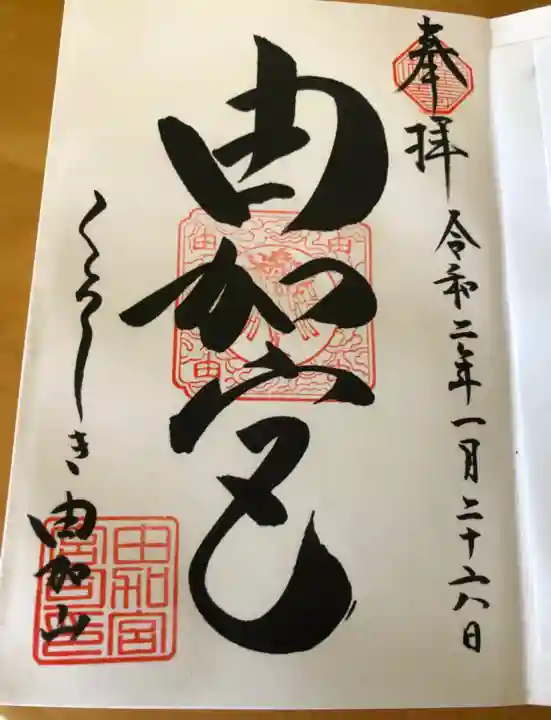 奉拝
令和二年一月二十六日
由加宮
くらしき
由加山
由加宮
由
由
由